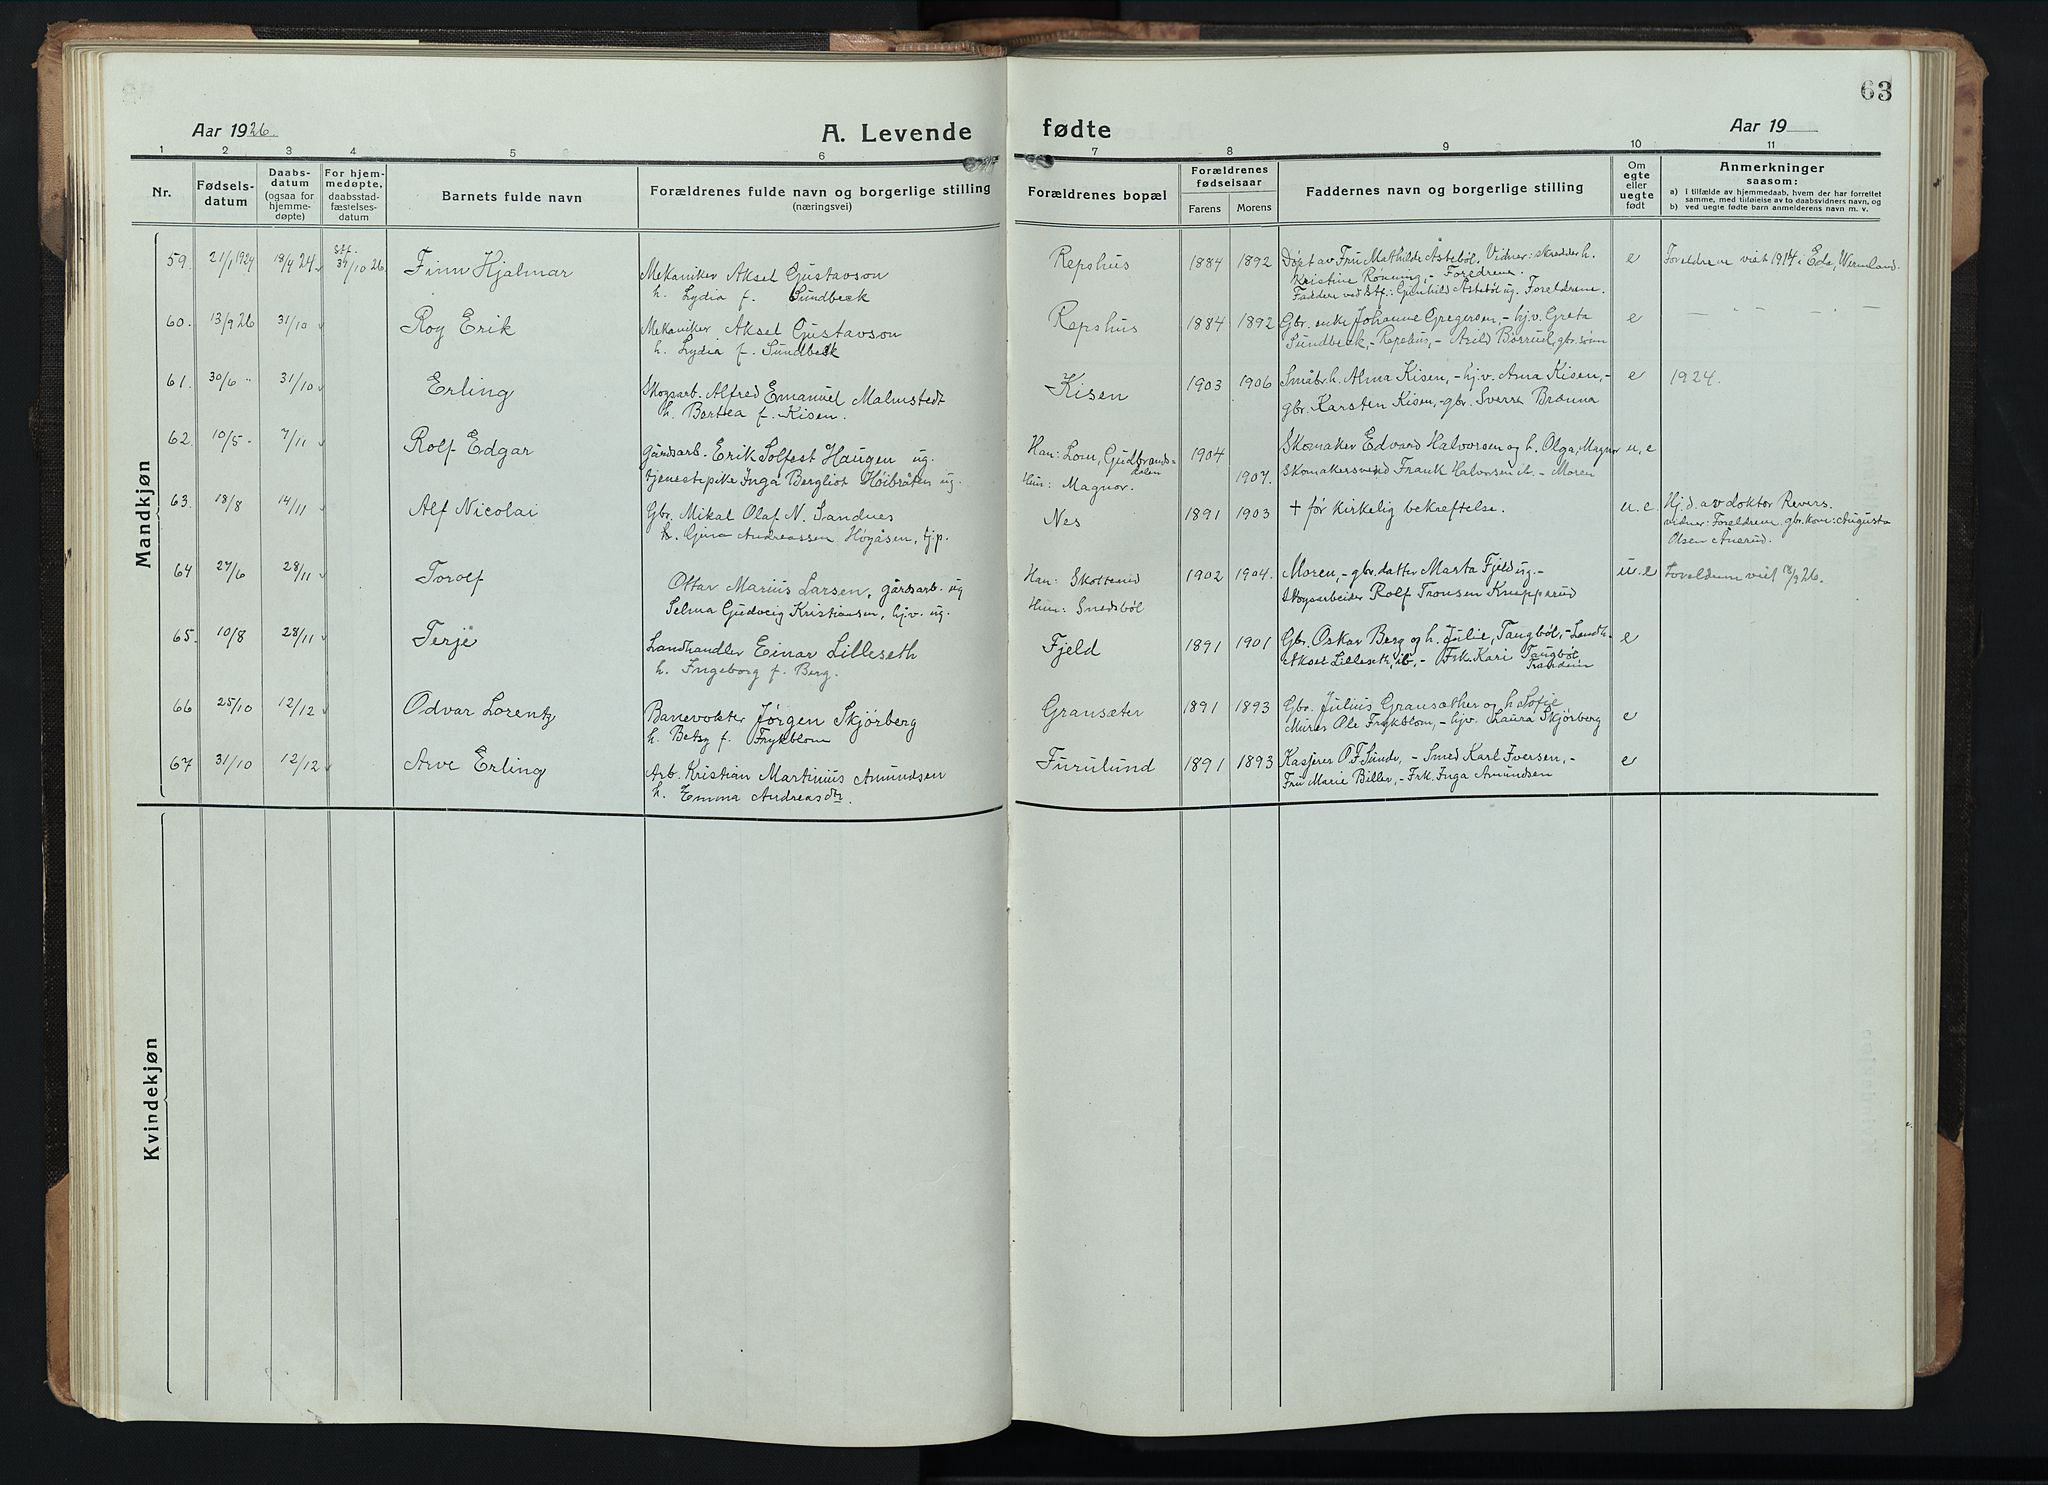 63
Aar 1926.
A. Levende fødte
Aar 19
1 2 3 4 5 6 7 8 9 10 11
Nr.
Fødsels-
datum
Daabs-
datum
(ogsaa for
hjemme-
døpte)
For hjem-
medøpte,
daabsstad-
fæstelses-
datum
Barnets fulde navn
Forældrenes fulde navn og borgerlige stilling
(næringsvei)
Forældrenes bopæl
Forældrenes
fødselsaar
Farens Morens
Faddernes navn og borgerlige stilling
Om
egte
eller
uegte
født
Anmerkninger
saasom:
a) I tilfælde av hjemmedaab, hvem der har forrettet
samme, med tilføielse av to daabsvidners navn, og
b) ved uegte fødte barn anmelderens navn m. v.
Mandkjøn
59. 21/1 1924 18/9 24 stf. 31/10 26. Finn Hjalmar Mekaniker Aksel Gustavson Repshus 1884 1892 Døpt av Fru Mathilde Åstebøl. Vidner: skredder h. e Foreldrene viet 1914 i Eda, Wermland.
h. Lydia f. Sundbeck Kristine Rønning, - Foreldrene.
Faddere ved stf.: Gunhild Åstebøl ug. Foreldrene.
60. 13/9 26 31/10 Roy Erik Mekaniker Aksel Gustavson Repshus 1884 1892 Gbr. enke Johanne Gregersen, - hj.v. Greta e — " — " —
h. Lydia f. Sundbeck Sundbeck, - Repshus, - Arild Borrud, gbr.sønn
61. 30/6 " 31/10 Erling Skogsarb. Alfred Emanuel Malmstedt Kisen 1903 1906 Småbr.h. Alma Kisen, - hj.v. Anna Kisen, - e 1924.
h. Bertea f. Kisen. gbr. Karsten Kisen, - gbr. Sverre Brænna
62. 10/5 - 7/11 Rolf Edgar Gårdsarb. Erik Solfest Haugen ug. Han: Lom, Gudbrands- 1904 Skomaker Edvard Halvorsen og h. Olga, Magnor u. e
dalen
tjenestepike Inga Bergliot Høibråten ug. Hun: Magnor. 1907. Skomakersvend Frank Halvorsen it. - Moren
63. 18/8 14/11 Alf Nicolai Gbr. Mikal Olaf N. Sandnes Nes 1891 1903 + før kirkelig bekreftelse. u. e. Hj.d. av doktor Revers.
h. Gina Andreassen Høgåsen, tj.p. vidner: Foreldrene. gbr.kone: Augusta
Olsen Anerud.
64 27/6 28/11 Torolf Ottar Marius Larsen, gårdsarb. ug Han: Skotterud 1902 1904. Moren, - gbr.datter Marta Fjeld ug. - u. e Foreldrene viet 18/9 26.
Selma Gudveig Kristiansen, hj.v. ug. Hun: Snedsbøl Skogsarbeider Rolf Tronsen Knapperud
65. 10/8 28/11 Terje Landhandler Einar Lilleseth Fjeld 1891 1901 Gbr. Oskar Berg og h. Julie, Tangbøl, - Landh. e
h. Ingeborg f. Berg. Aksel Lilleseth, ib, - Frk. Kari Taugbøl
66 25/10 12/12 Odvar Lorentz Banevokter Jørgen Skjørberg Gransæter 1891 1893 Gbr. Julius Gransæther og h. Sofie e
h. Betsy f. Frykblom Murer Ole Frykblom, - hj.v. Laura Skjørberg
67 31/10 12/12 Arve Erling Arb. Kristian Martinius Amundsen Furulund 1891 1893 Kasjerer O F Sunde, - Smed Karl Iversen, - e
h. Emma Andreasdtr. Fru Marie Biller, - Frk. Inga Amundsen
Kvindekjøn